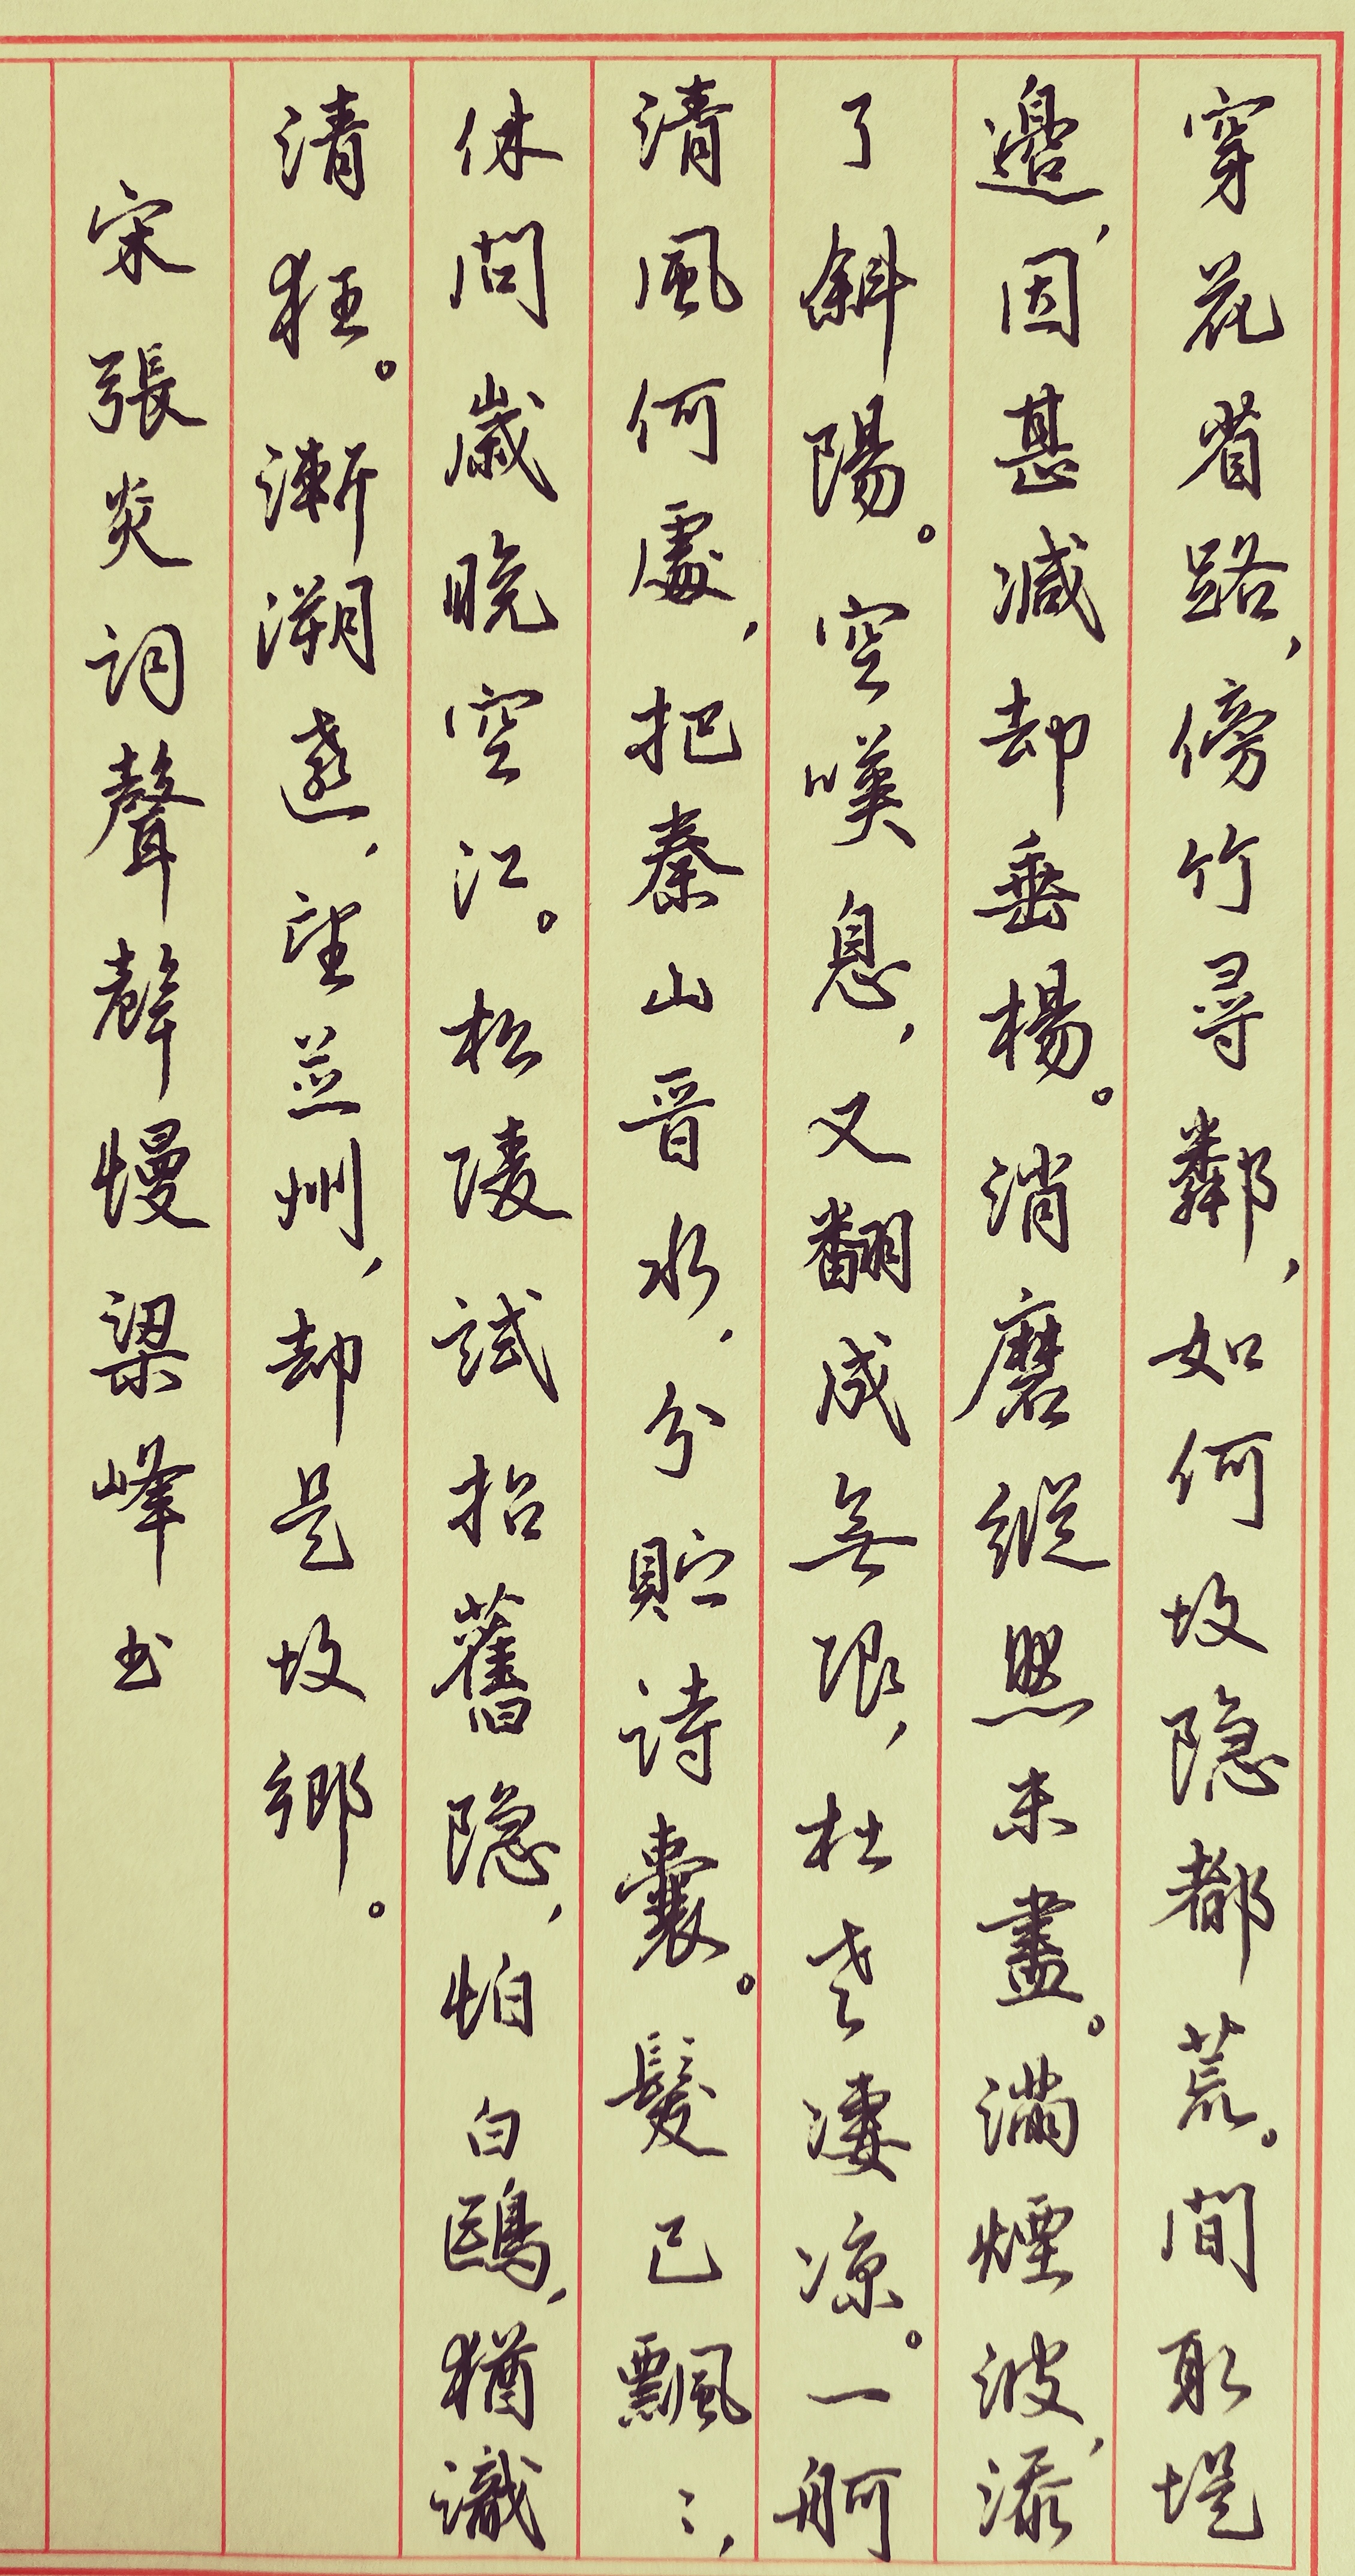 穿花省路，傍竹尋鄰，如何故隐都荒。問取堤
邉，因甚減却垂楊。消磨縱然未盡。滿煙波，添
了斜陽。空嘆息，又翻成無限，杜老凄凉。一舸
清風何處，把秦山晋水，分貯詩囊。髮已飄〻，
休問歲晚空江。松陵試招舊隐，怕白鷗，猶識
清狂。漸溯遠，望並州，却是故鄉。
宋張炎詞聲聲慢梁峰书